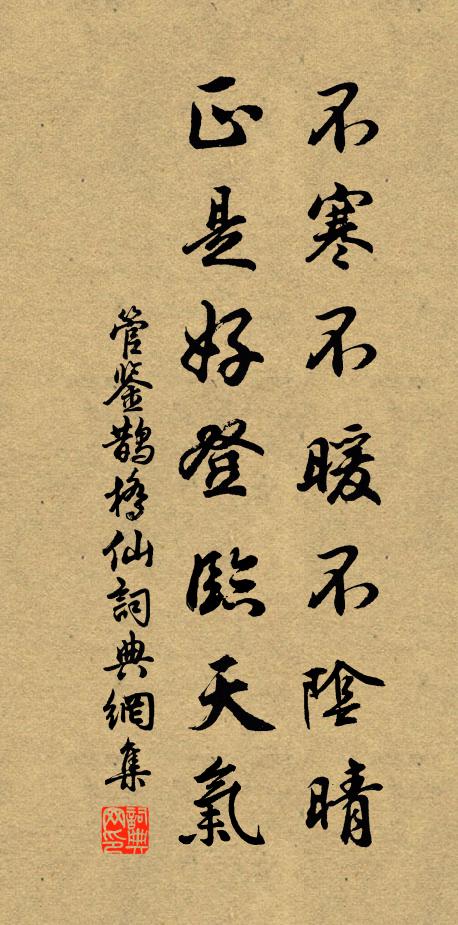 不寒不暖不陰晴
正是好登臨天氣
管鉴鵲橋仙詞典網集
詞典网印